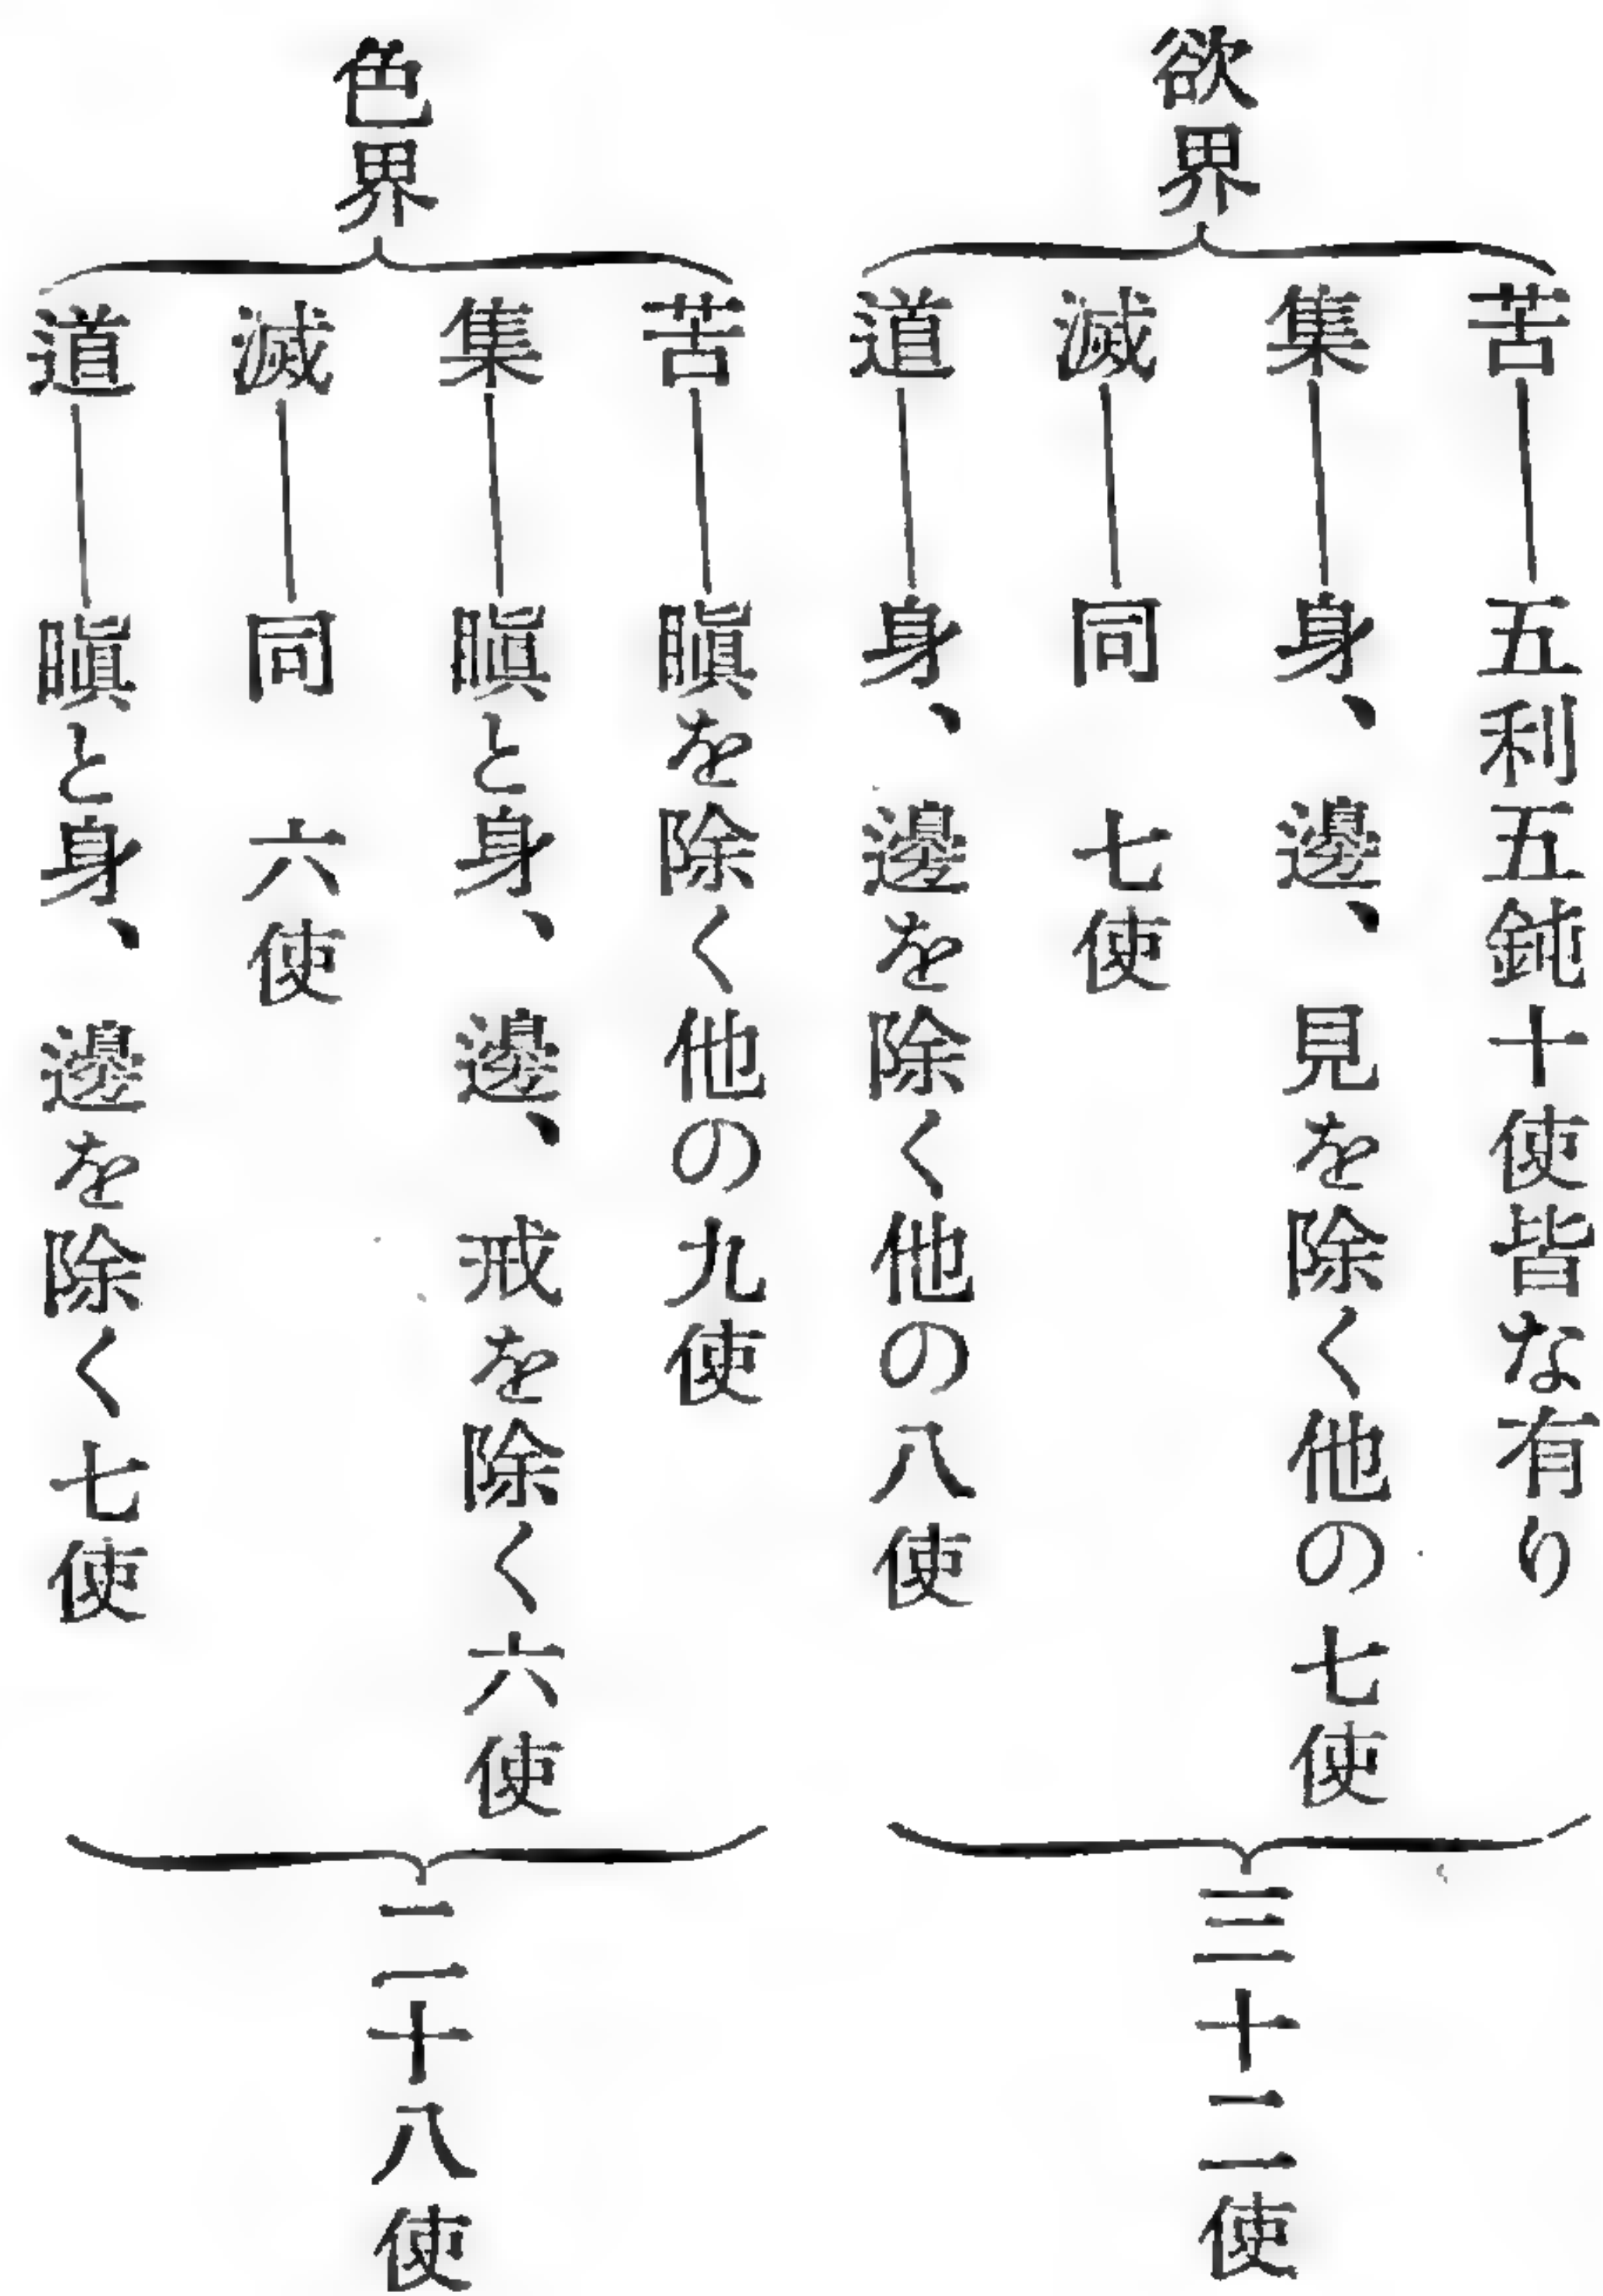 欲界
苦 五利五鈍十使皆な有り
集 身、邊、見を除く他の七使
滅 同 七使
道 身、邊を除く他の八使
三十二使
色界
苦 瞋を除く他の九使
集 瞋と身、邊、戒を除く六使
滅 同 六使
道 瞋と身、邊を除く七使
二十八使